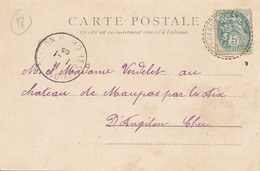 18
CARTE POSTALE
Ce côté est exclusivement réservé à l'adresse.
M. et Madame Verdelet au
chateau de Maupas par les Aix
D'Angilon Cher